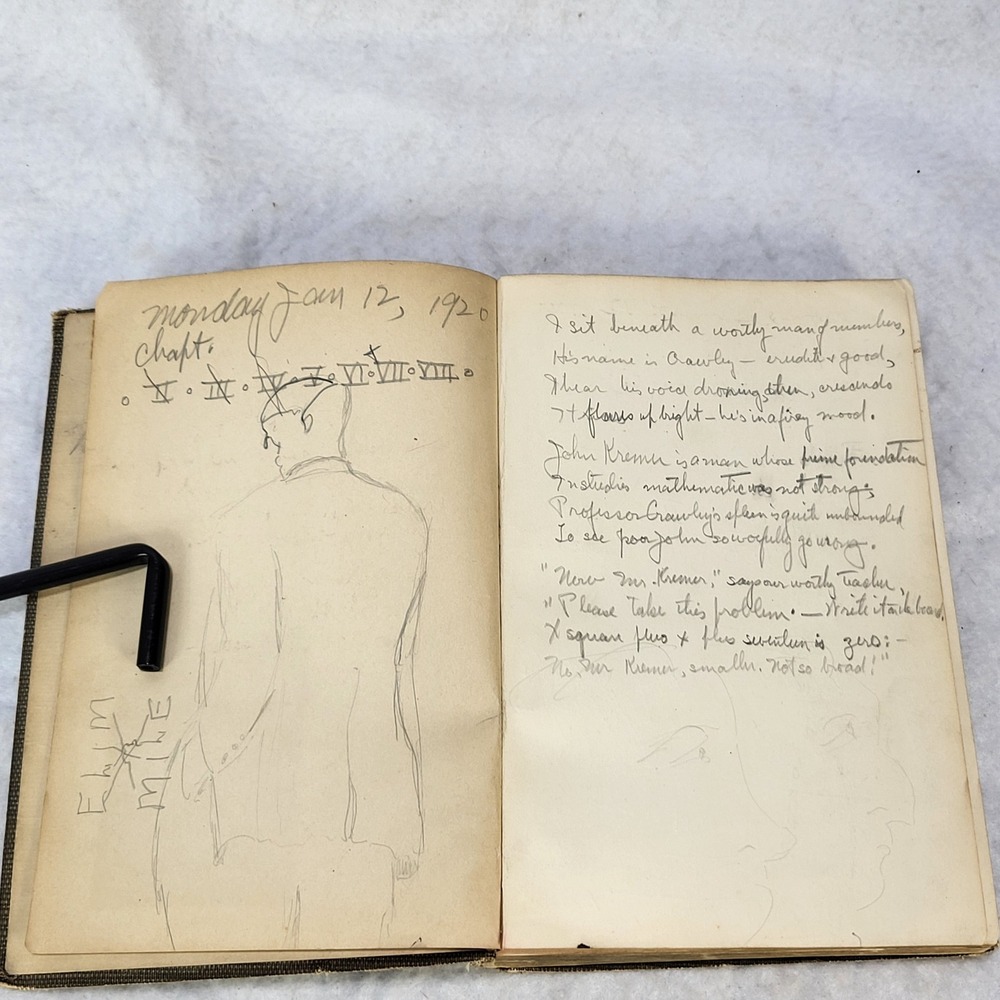 Monday Jan 12, 1920
Chapt.
X
IX IV V VI VII VIII
EWIM
MIKE
I sit beneath a worthy man of numbers,
His name is Crawley — erudite & good,
I hear his voice droning, then, crescendo
It flares up bright — he's in a fiery mood.
John Kremer is a man whose prime foundation
In studies mathematic was not strong;
Professor Crawley's spleen is quite unbounded
To see poor John so woefully go wrong.
"Now Mr. Kremer," says our worthy teacher,
"Please take this problem. — Write it on the board.
X square plus x plus seventeen is zero: —
No, Mr Kremer, smaller. Not so broad!"